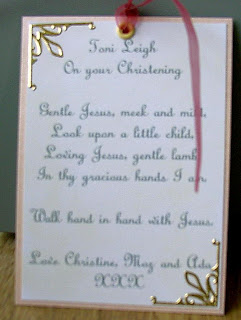 Toni Leigh
On your Christening
Gentle Jesus, meek and mild,
Look upon a little child,
Loving Jesus, gentle lamb
In thy gracious hands I am.
Walk hand in hand with Jesus.
Love Christine, Moz and Ada
XXX